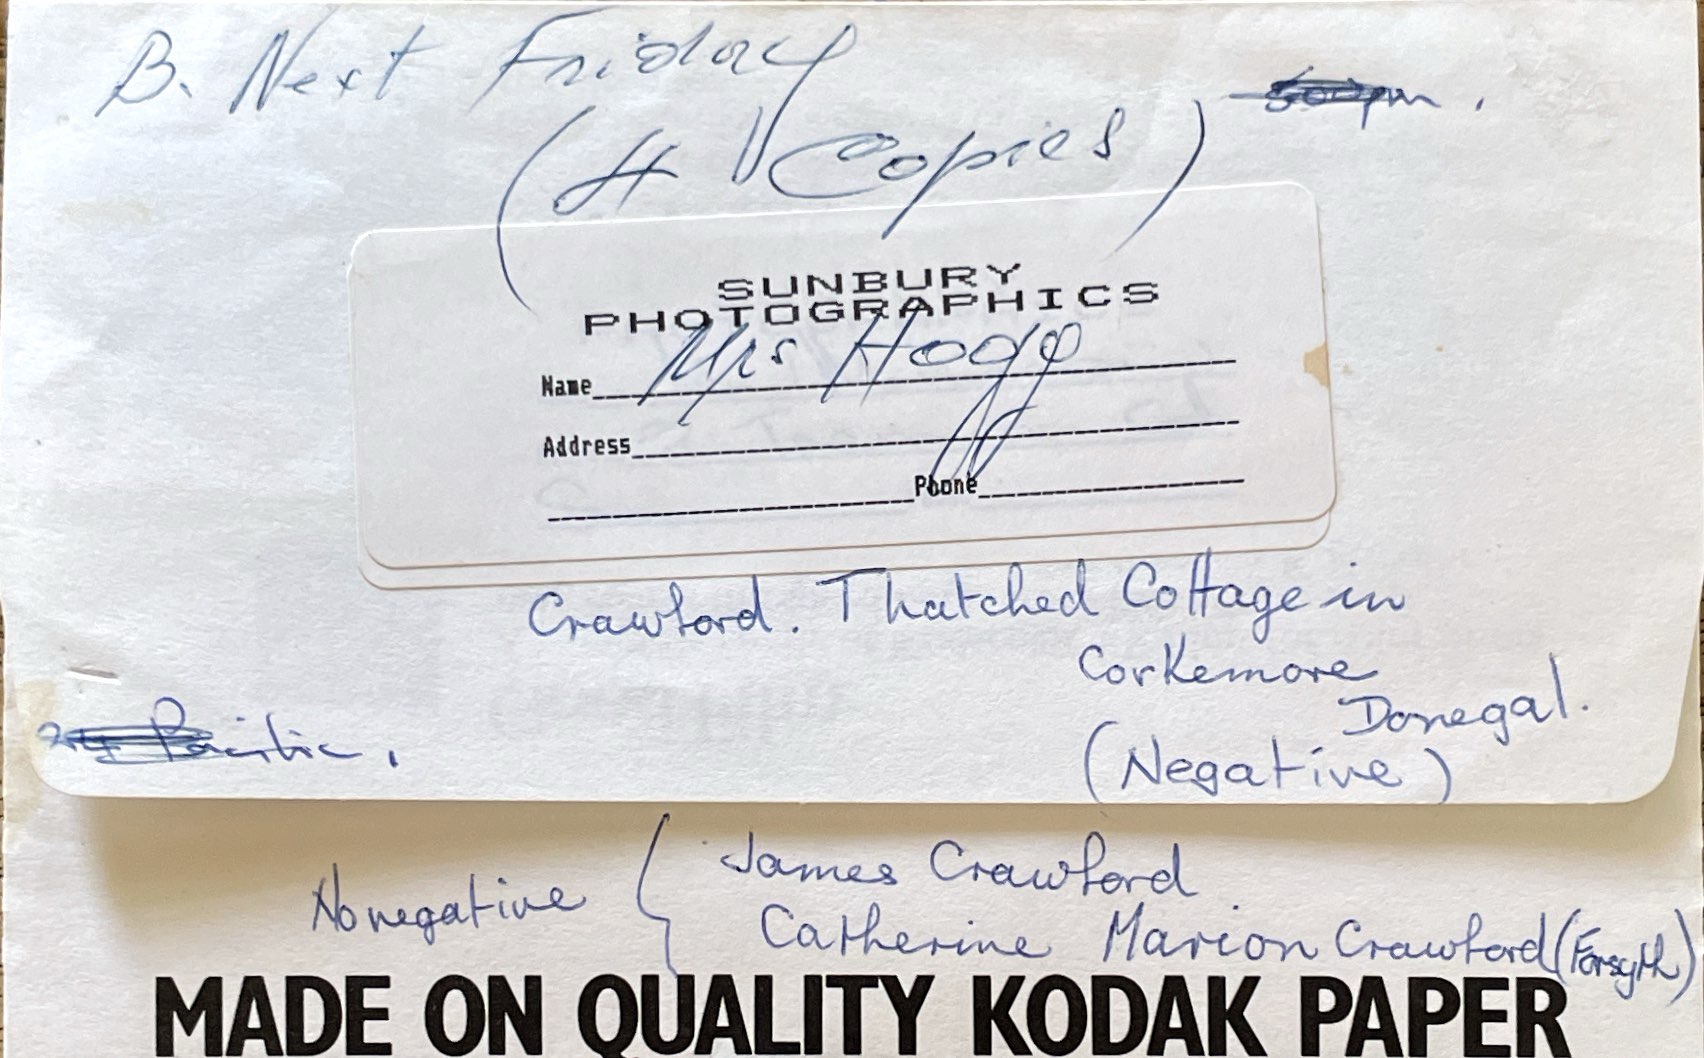 B. Next Friday
(4 Copies)
SUNBURY
PHOTOGRAPHICS
Name Mrs Hogg
Address
Phone
Crawford. Thatched Cottage in
Corkemore
Donegal.
(Negative)
No negative { James Crawford
Catherine Marion Crawford (Forsyth)
MADE ON QUALITY KODAK PAPER